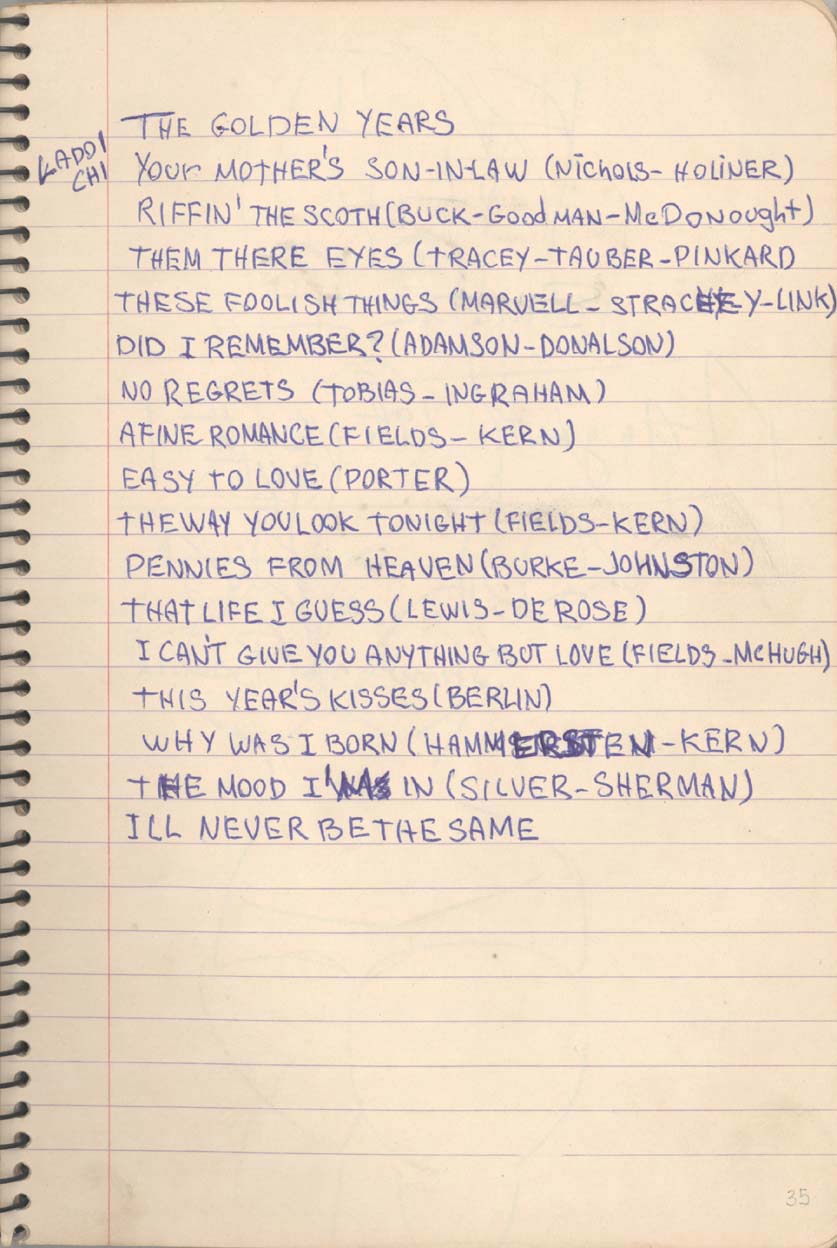 KADDI
CHI
THE GOLDEN YEARS
YOUR MOTHER'S SON-IN-LAW (NICHOLS-HOLINER)
RIFFIN' THE SCOTH (BUCK-GOODMAN-McDONOUGHT)
THEM THERE EYES (TRACEY-TAUBER-PINKARD
THESE FOOLISH THINGS (MARVELL-STRACHEY-LINK)
DID I REMEMBER? (ADAMSON-DONALSON)
NO REGRETS (TOBIAS-INGRAHAM)
A FINE ROMANCE (FIELDS-KERN)
EASY TO LOVE (PORTER)
THE WAY YOU LOOK TONIGHT (FIELDS-KERN)
PENNIES FROM HEAVEN (BURKE-JOHNSTON)
THAT LIFE I GUESS (LEWIS-DE ROSE)
I CAN'T GIVE YOU ANYTHING BUT LOVE (FIELDS-McHUGH)
THIS YEAR'S KISSES (BERLIN)
WHY WAS I BORN (HAMMERSTEN-KERN)
THE MOOD I'M IN (SILVER-SHERMAN)
ILL NEVER BE THE SAME
35